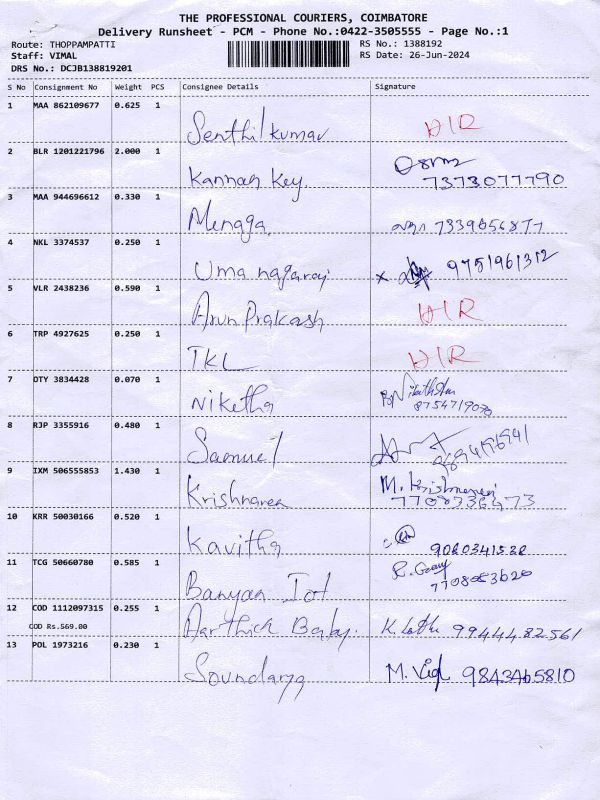 THE PROFESSIONAL COURIERS, COIMBATORE
Delivery Runsheet - PCM - Phone No.:0422-3505555 - Page No.:1
Route: THOPPAMPATTI
Staff: VIMAL
DRS No.: DCJB138819201
RS No.: 1388192
RS Date: 26-Jun-2024
S No Consignment No Weight PCS Consignee Details Signature
1 MAA 862109677 0.625 1
Senthil kumar D/R
2 BLR 1201221796 2.000 1
Kannan Key. 7373077790
3 MAA 944696612 0.330 1
Menaga. 7339656877
4 NKL 3374537 0.250 1
Uma nagaraj x 9751961312
5 VLR 2438236 0.590 1
Arun Prakash D/R
6 TRP 4927625 0.250 1
TKL D/R
7 DTY 3834428 0.070 1
Niketha 8754719070
8 RJP 3355916 0.480 1
Samuel 9894196941
9 IXM 506555853 1.430 1
Krishnaveni M. Krishnaveni
7708736473
10 KRR 50030166 0.520 1
Kavitha
11 TCG 50660780 0.585 1
Banyan Iot 7708053620
12 COD 1112097315 0.255 1
COD Rs.569.00
Aarthick Baby. 9944482561
13 POL 1973216 0.230 1
Soundarya 9843465810